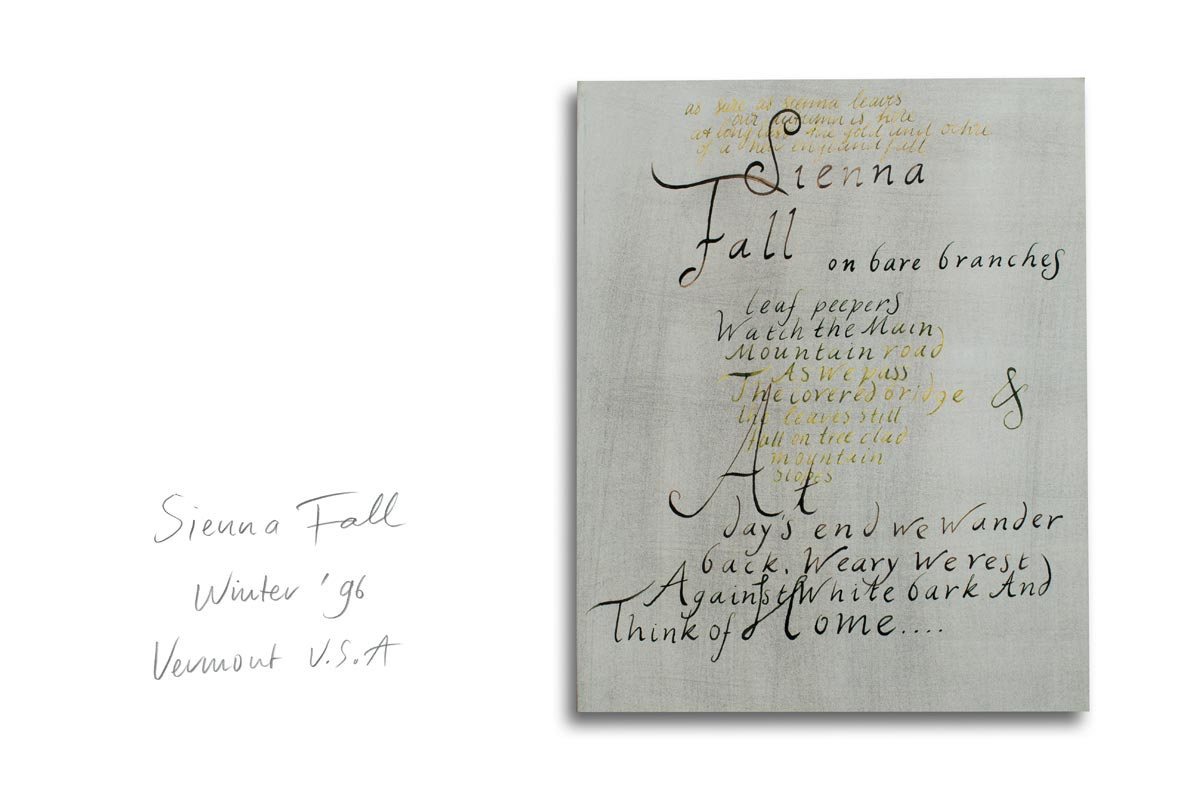 Sienna Fall
Winter '96
Vermont U.S.A
as sure as sienna leaves
our autumn is here
at long last the gold and ochre
of a new england fall
Sienna
Fall
on bare branches
leaf peepers
Watch the Main
Mountain road
As We pass
The covered bridge
&
the leaves still
fall on tree clad
mountain
slopes
At
day's end we Wander
back. Weary We rest
Against White bark And
Think of Home....